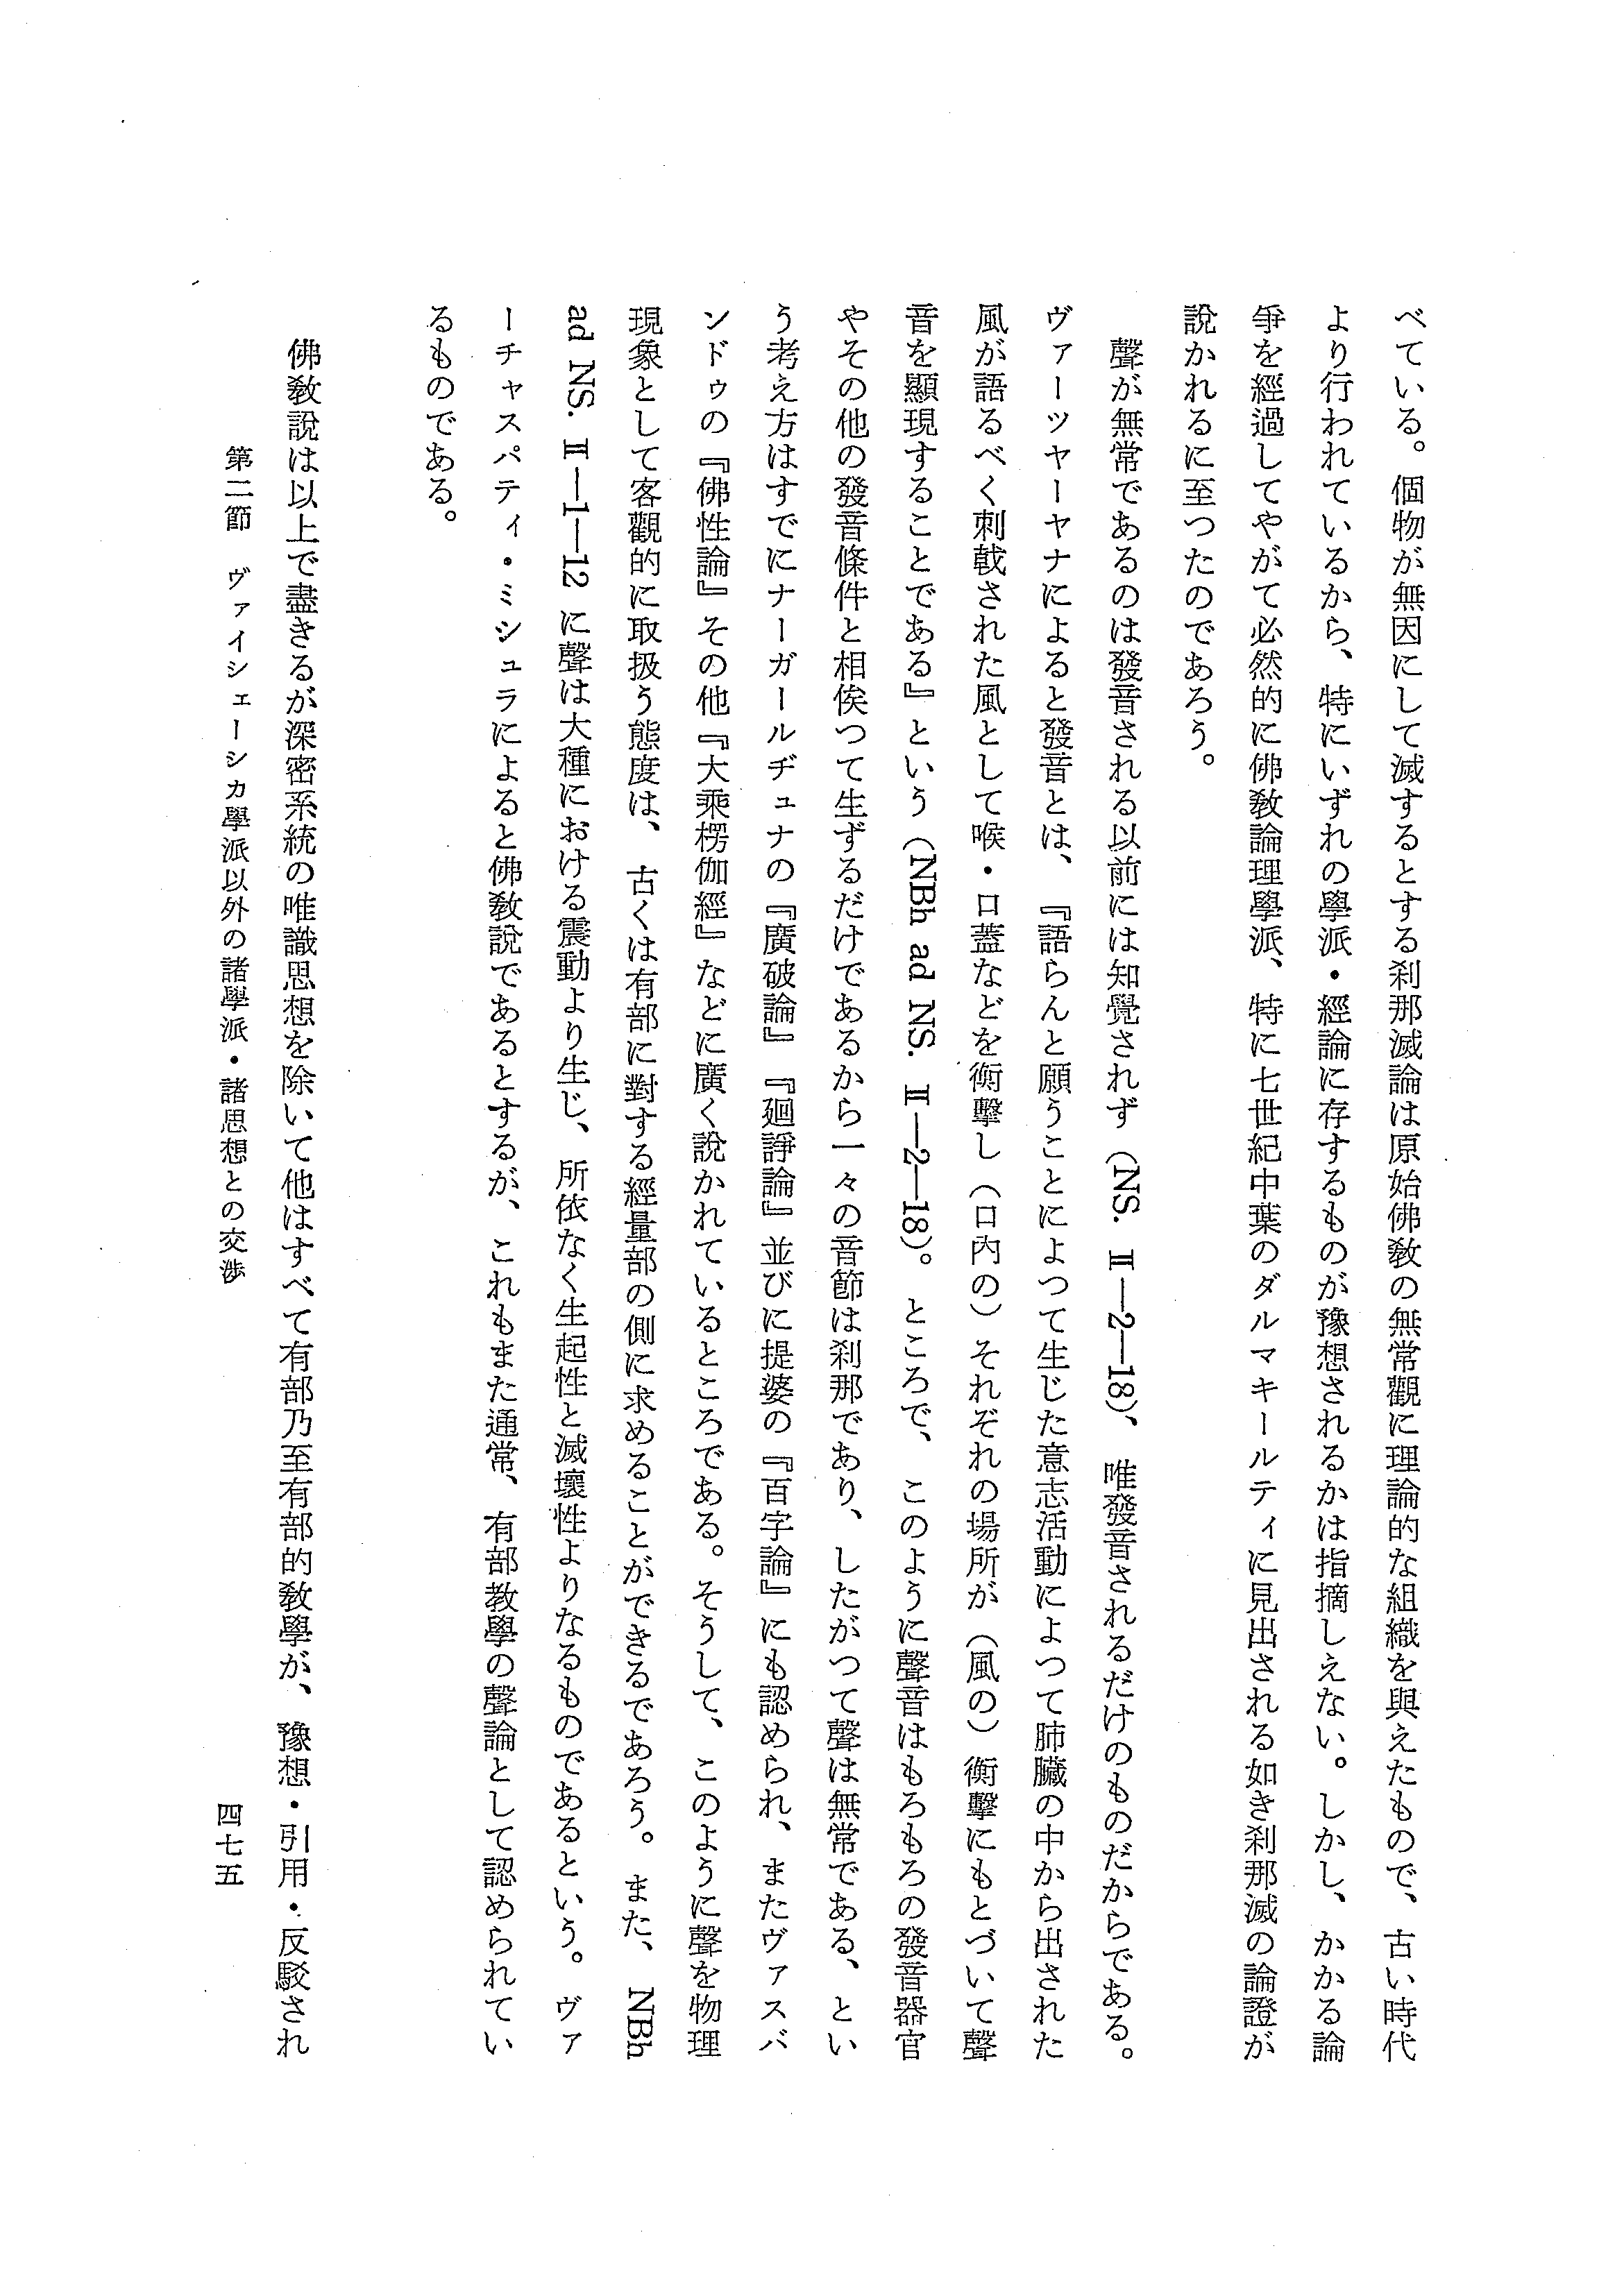 べている。個物が無因にして滅するとする刹那滅論は原始佛教の無常觀に理論的な組織を與えたもので、古い時代
より行われているから、特にいずれの學派・經論に存するものが豫想されるかは指摘しえない。しかし、かかる論
爭を經過してやがて必然的に佛教論理學派、特に七世紀中葉のダルマキールティに見出される如き刹那滅の論證が
說かれるに至つたのであろう。
聲が無常であるのは發音される以前には知覺されず（NS. II—2—18）、唯發音されるだけのものだからである。
ヴァーツヤーヤナによると發音とは、『語らんと願うことによつて生じた意志活動によつて肺臟の中から出された
風が語るべく刺戟された風として喉・口蓋などを衝擊し（口內の）それぞれの場所が（風の）衝擊にもとづいて聲
音を顯現することである』という（NBh ad NS. II—2—18）。ところで、このように聲音はもろもろの發音器官
やその他の發音條件と相俟つて生ずるだけであるから一々の音節は刹那であり、したがつて聲は無常である、とい
う考え方はすでにナーガールヂュナの『廣破論』『廻諍論』並びに提婆の『百字論』にも認められ、またヴァスバ
ンドゥの『佛性論』その他『大乘楞伽經』などに廣く說かれているところである。そうして、このように聲を物理
現象として客觀的に取扱う態度は、古くは有部に對する經量部の側に求めることができるであろう。また、NBh
ad NS. II—1—12 に聲は大種における震動より生じ、所依なく生起性と滅壞性よりなるものであるという。ヴァ
ーチャスパティ・ミシュラによると佛教說であるとするが、これもまた通常、有部教學の聲論として認められてい
るものである。
佛教說は以上で盡きるが深密系統の唯識思想を除いて他はすべて有部乃至有部的教學が、豫想・引用・反駁され
第二節　ヴァイシェーシカ學派以外の諸學派・諸思想との交渉
四七五